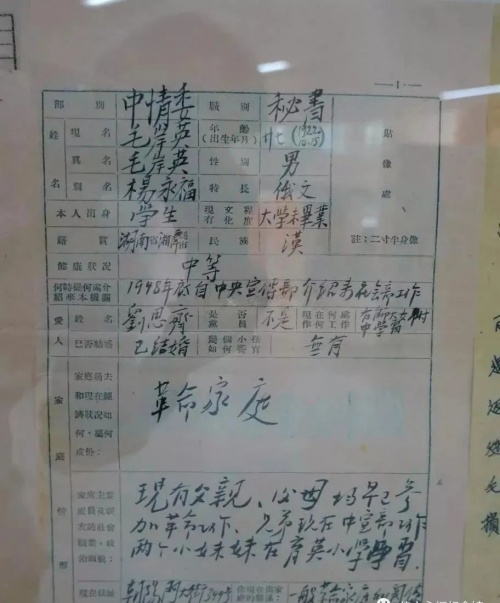 —1—
部別 中情委 職別 秘書
姓名 現名 毛岸英 年齡(出生年月) 廿七(1922.10.15) 貼像處
真名 毛岸英 性別 男
別名 楊永福 特長 俄文
本人出身 學生 現有文化程度 大學未畢業
籍貫 湖南省湘潭 民族 漢 註：二寸半身像
健康狀況 中等
何時從何處介紹來本機關 1948年底自中央宣傳部介紹来在会工作
愛人 姓名 劉思齊 是否黨員 不是 現在何處何工作 中學
已否結婚 已結婚 幾個小孩如何教育 無有
家庭情形 家庭過去和現在經濟狀況如何，屬何成份： 革命家庭
家庭主要成員及其社會職業、政治面貌： 現有父親、父母媽早已參
加革命工作、兄弟现在中宣部工作
两个小妹妹在育英小學學習
現在住址 朝陽門大街 一般革命家庭和関係